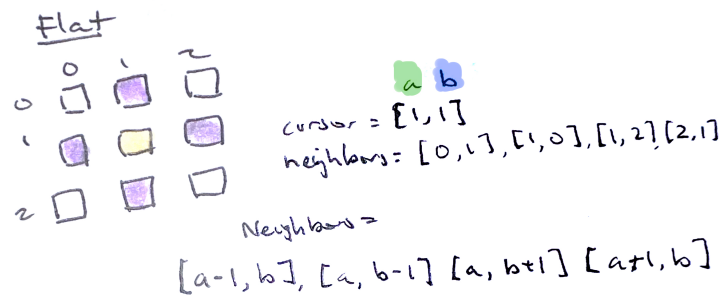 Flat
0 1 2
0
1
2
a b
cursor = [1,1]
neighbors = [0,1], [1,0], [1,2], [2,1]
Neighbors =
[a-1, b], [a, b-1] [a, b+1] [a+1, b]